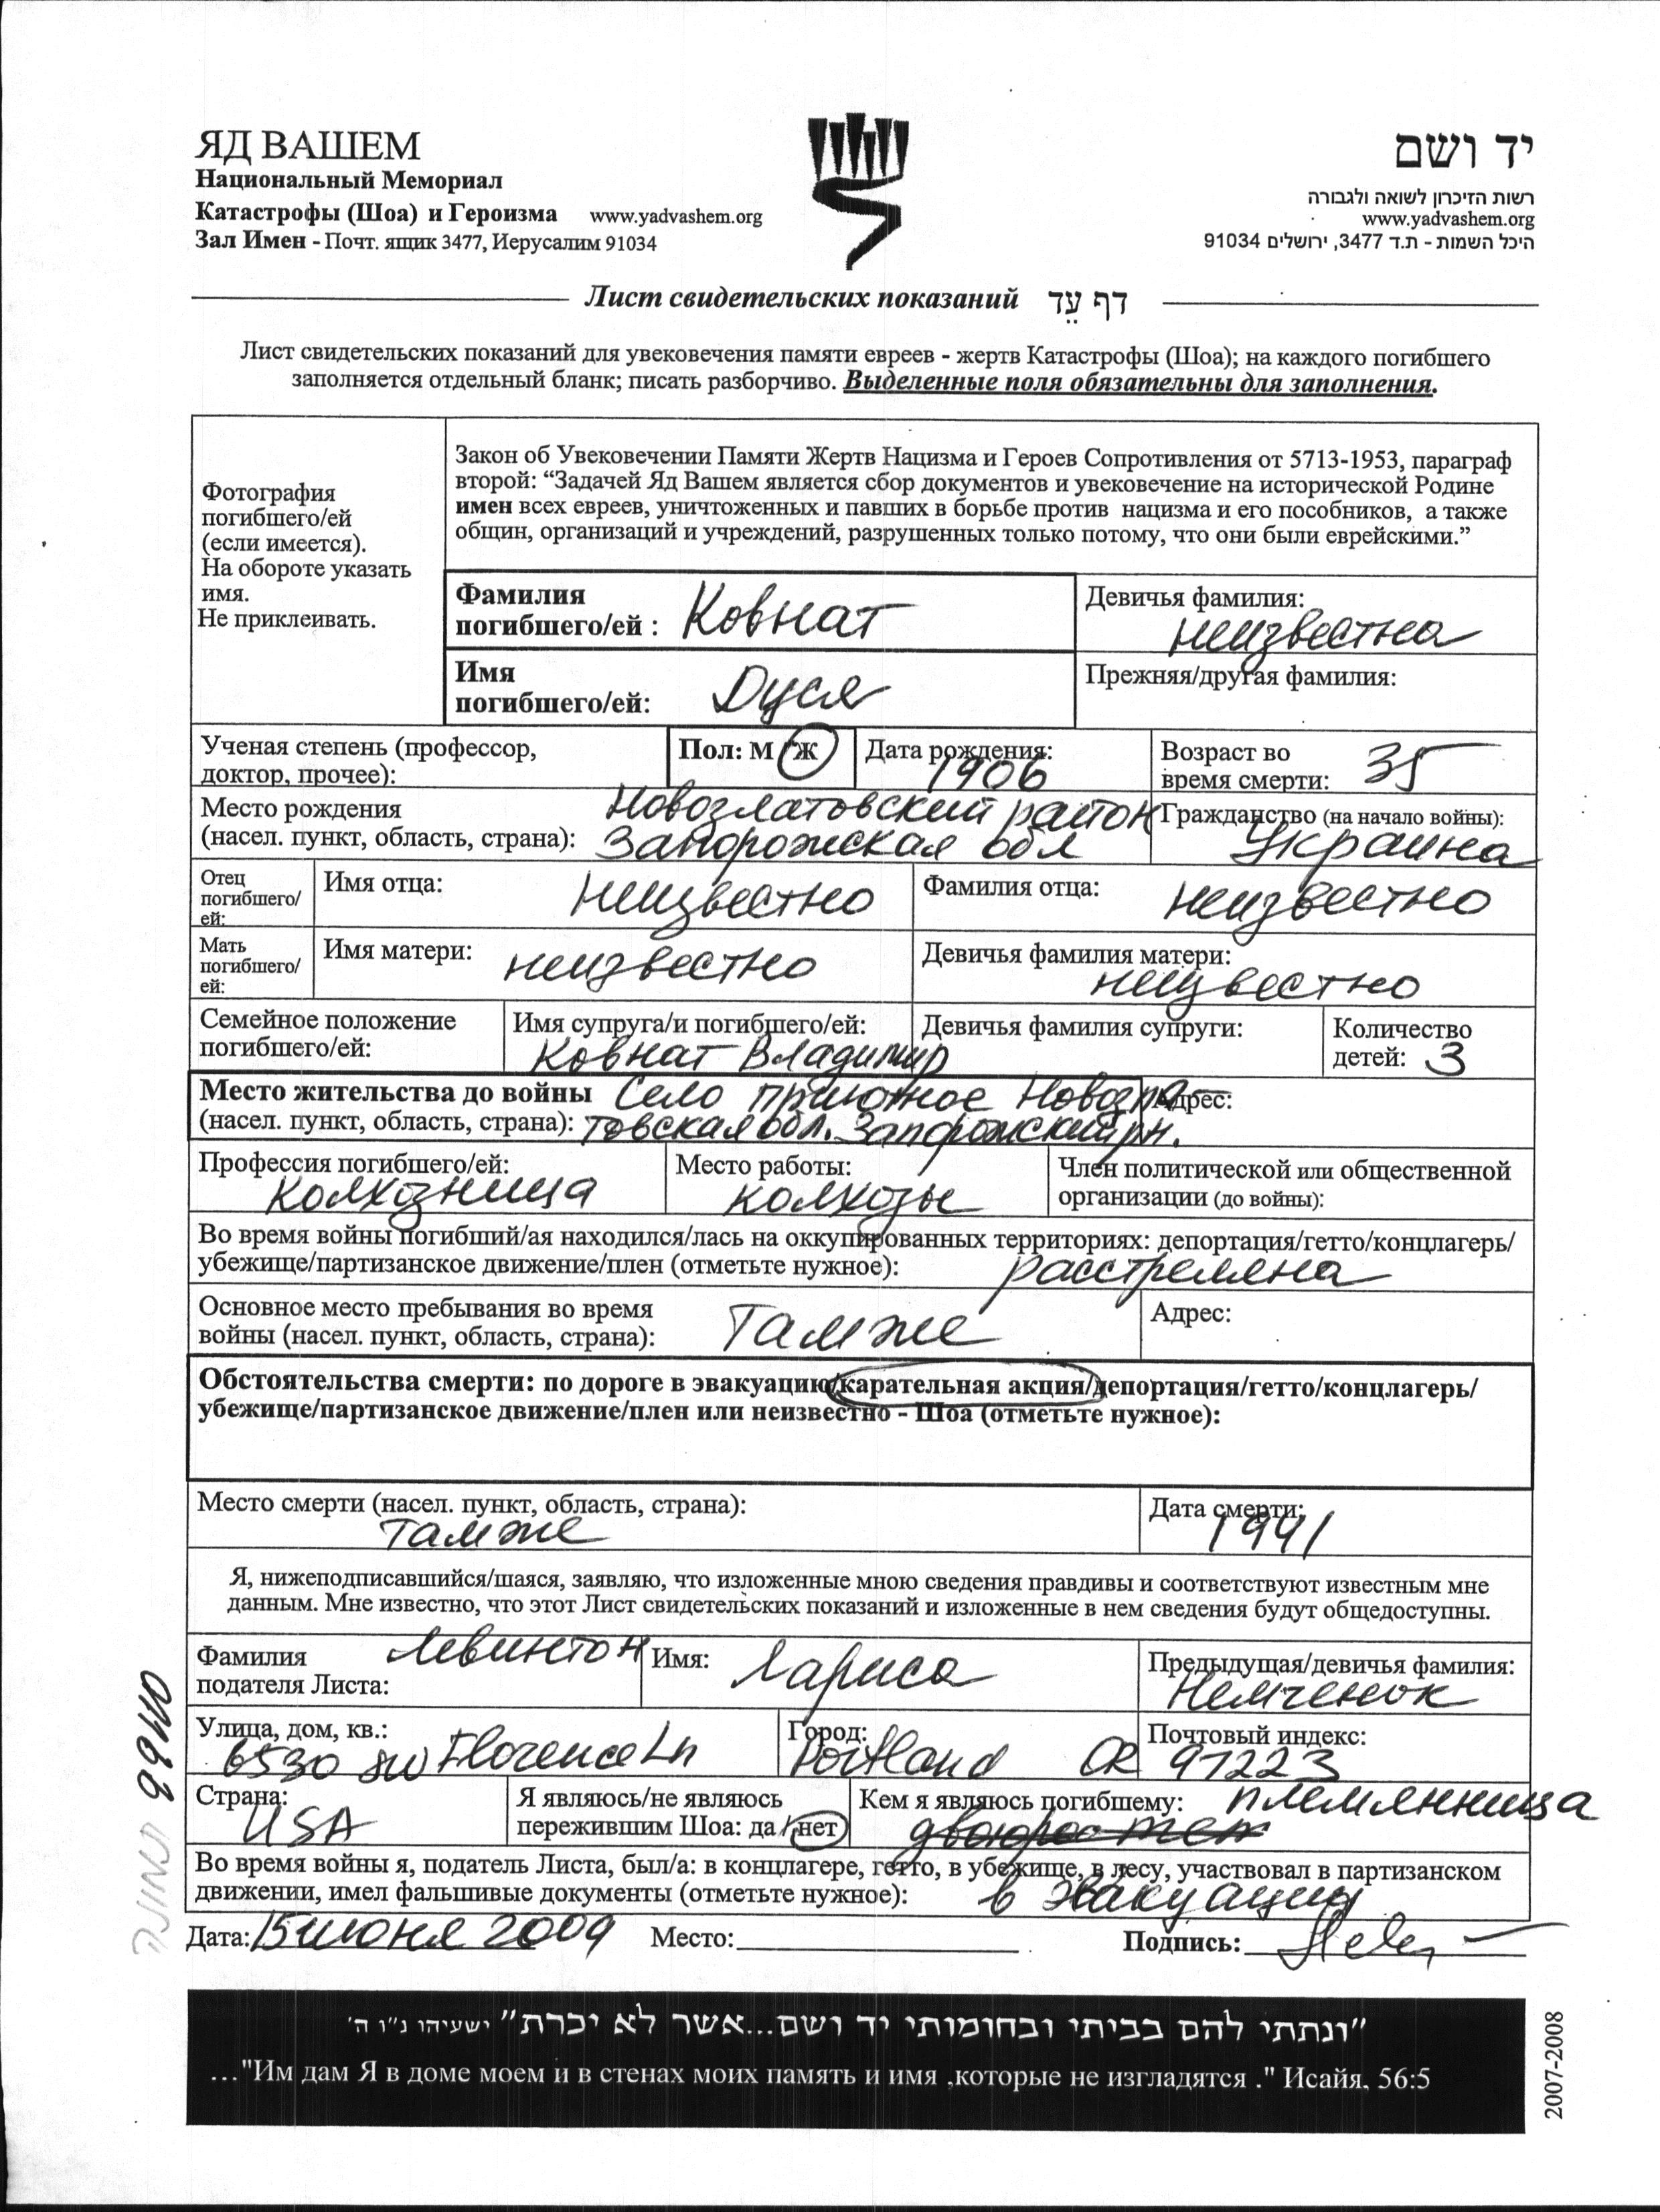 ЯД ВАШЕМ
Национальный Мемориал
Катастрофы (Шоа) и Героизма www.yadvashem.org
Зал Имен - Почт. ящик 3477, Иерусалим 91034
יד ושם
רשות הזיכרון לשואה ולגבורה
www.yadvashem.org
היכל השמות - ת.ד 3477, ירושלים 91034
Лист свидетельских показаний דף עֵד
Лист свидетельских показаний для увековечения памяти евреев - жертв Катастрофы (Шоа); на каждого погибшего
заполняется отдельный бланк; писать разборчиво. Выделенные поля обязательны для заполнения.
Фотография
погибшего/ей
(если имеется).
На обороте указать
имя.
Не приклеивать.
Закон об Увековечении Памяти Жертв Нацизма и Героев Сопротивления от 5713-1953, параграф
второй: “Задачей Яд Вашем является сбор документов и увековечение на исторической Родине
имен всех евреев, уничтоженных и павших в борьбе против нацизма и его пособников, а также
общин, организаций и учреждений, разрушенных только потому, что они были еврейскими.”
Фамилия
погибшего/ей : Ковнат
Девичья фамилия:
неизвестна
Имя
погибшего/ей: Дуся
Прежняя/другая фамилия:
Ученая степень (профессор,
доктор, прочее):
Пол: М /Ж
Дата рождения:
1906
Возраст во
время смерти: 35
Место рождения Новозлатовский район
(насел. пункт, область, страна): Запорожская обл
Гражданство (на начало войны):
Украина
Отец
погибшего/
ей:
Имя отца: неизвестно
Фамилия отца: неизвестно
Мать
погибшего/
ей:
Имя матери: неизвестно
Девичья фамилия матери:
неизвестно
Семейное положение
погибшего/ей:
Имя супруга/и погибшего/ей:
Ковнат Владимир
Девичья фамилия супруги:
Количество
детей: 3
Место жительства до войны Село приютное Новозла
(насел. пункт, область, страна): товская обл. Запорожский рн.
Адрес:
Профессия погибшего/ей:
колхозница
Место работы:
колхозы
Член политической или общественной
организации (до войны):
Во время войны погибший/ая находился/лась на оккупированных территориях: депортация/гетто/концлагерь/
убежище/партизанское движение/плен (отметьте нужное): расстреляна
Основное место пребывания во время
войны (насел. пункт, область, страна): Тамже
Адрес:
Обстоятельства смерти: по дороге в эвакуацию/карательная акция/депортация/гетто/концлагерь/
убежище/партизанское движение/плен или неизвестно - Шоа (отметьте нужное):
Место смерти (насел. пункт, область, страна):
тамже
Дата смерти:
1941
Я, нижеподписавшийся/шаяся, заявляю, что изложенные мною сведения правдивы и соответствуют известным мне
данным. Мне известно, что этот Лист свидетельских показаний и изложенные в нем сведения будут общедоступны.
Фамилия Левинтон
подателя Листа:
Имя: Лариса
Предыдущая/девичья фамилия:
Немченок
Улица, дом, кв.:
6530 SW Florence Ln
Город:
Portland OR
Почтовый индекс:
97223
Страна:
USA
Я являюсь/не являюсь
пережившим Шоа: да / нет
Кем я являюсь погибшему: племянница
Во время войны я, податель Листа, был/а: в концлагере, гетто, в убежище, в лесу, участвовал в партизанском
движении, имел фальшивые документы (отметьте нужное): в эвакуации
Дата: 15 июня 2009 Место: Подпись:
”ונתתי להם בביתי ובחומותי יד ושם...אשר לא יכרת” ישעיהו נ״ו ה׳
..."Им дам Я в доме моем и в стенах моих память и имя ,которые не изгладятся ." Исайя, 56:5
2007-2008